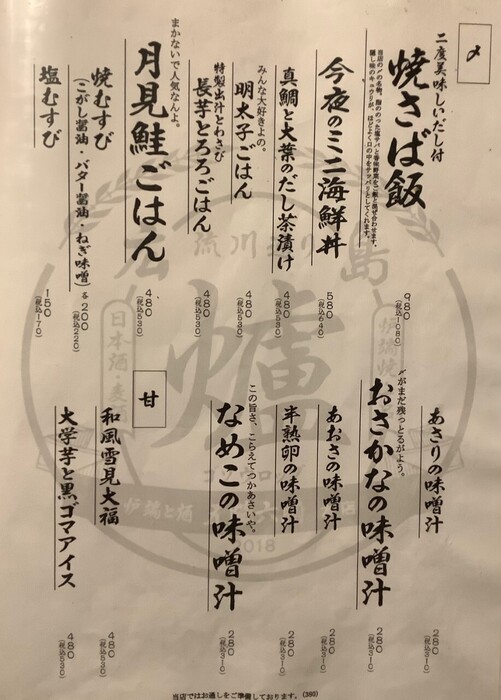 〆
二度美味しいだし付
焼さば飯
980
(税込1080)
今夜のミニ海鮮丼
580
(税込640)
真鯛と大葉のだし茶漬け
480
(税込530)
みんな大好きよの。
明太子ごはん
480
(税込530)
特製出汁とわさび
長芋とろろごはん
480
(税込530)
まかないで人気なんよ。
月見鮭ごはん
480
(税込530)
焼むすび
(こがし醤油・バター醤油・ねぎ味噌)各200
(税込220)
塩むすび
150
(税込170)
あさりの味噌汁
280
(税込310)
〆がまだ残っとるがよう。
おさかなの味噌汁
280
(税込310)
あおさの味噌汁
280
(税込310)
半熟卵の味噌汁
280
(税込310)
この旨さ、こらえてつかあさいや。
なめこの味噌汁
280
(税込310)
甘
和風雪見大福
480
(税込530)
大学芋と黒ゴマアイス
480
(税込530)
広島
流川
爐
炉端焼
日本酒・麦
炉端と酒
2018
当店ではお通しをご準備しております。(380)